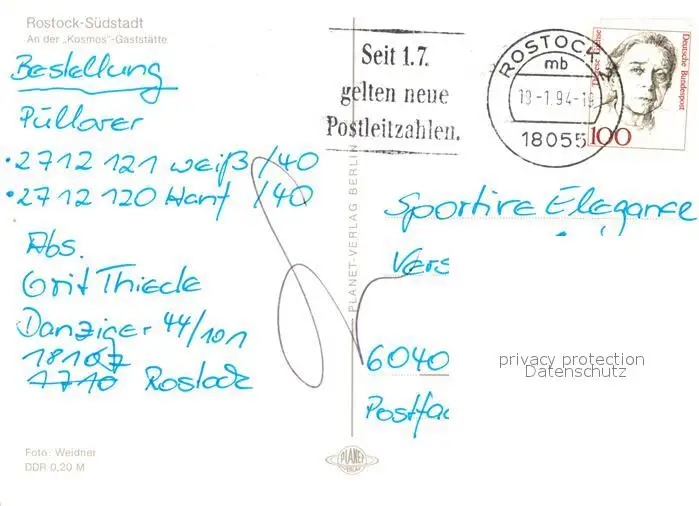 Rostock-Südstadt
An der „Kosmos"-Gaststätte
Bestellung
Püllover
• 2712 121 weiß /40
• 2712 120 Hanf /40
Abs.
Grit Thiede
Danziger 44/101
18107
1710 Rostock
Foto: Weidner
DDR 0,20 M
PLANET-VERLAG BERLIN
PLANET
VERLAG
Seit 1.7.
gelten neue
Postleitzahlen.
ROSTOCK
mb
-1.94-
18055
Deutsche Bundespost
100
Sportive Elegance
Vers
6040
Postfac
privacy protection
Datenschutz